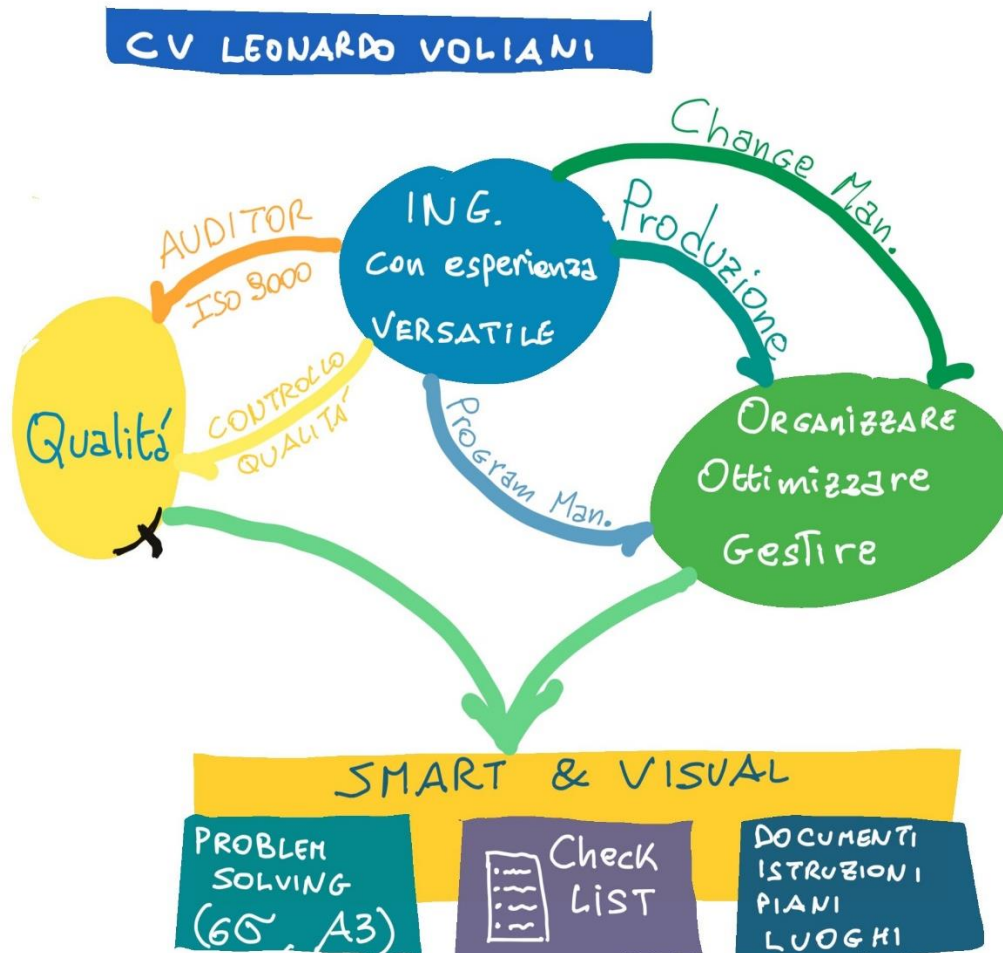 CV LEONARDO VOLIANI
Change Man.
AUDITOR
ISO 9000
ING.
con esperienza
VERSATILE
Produzione
Qualitá
CONTROLLO
QUALITÁ
Program Man.
ORGANIZZARE
Ottimizzare
Gestire
SMART & VISUAL
PROBLEM
SOLVING
(6σ, A3)
Check
LIST
DOCUMENTI
ISTRUZIONI
PIANI
LUOGHI